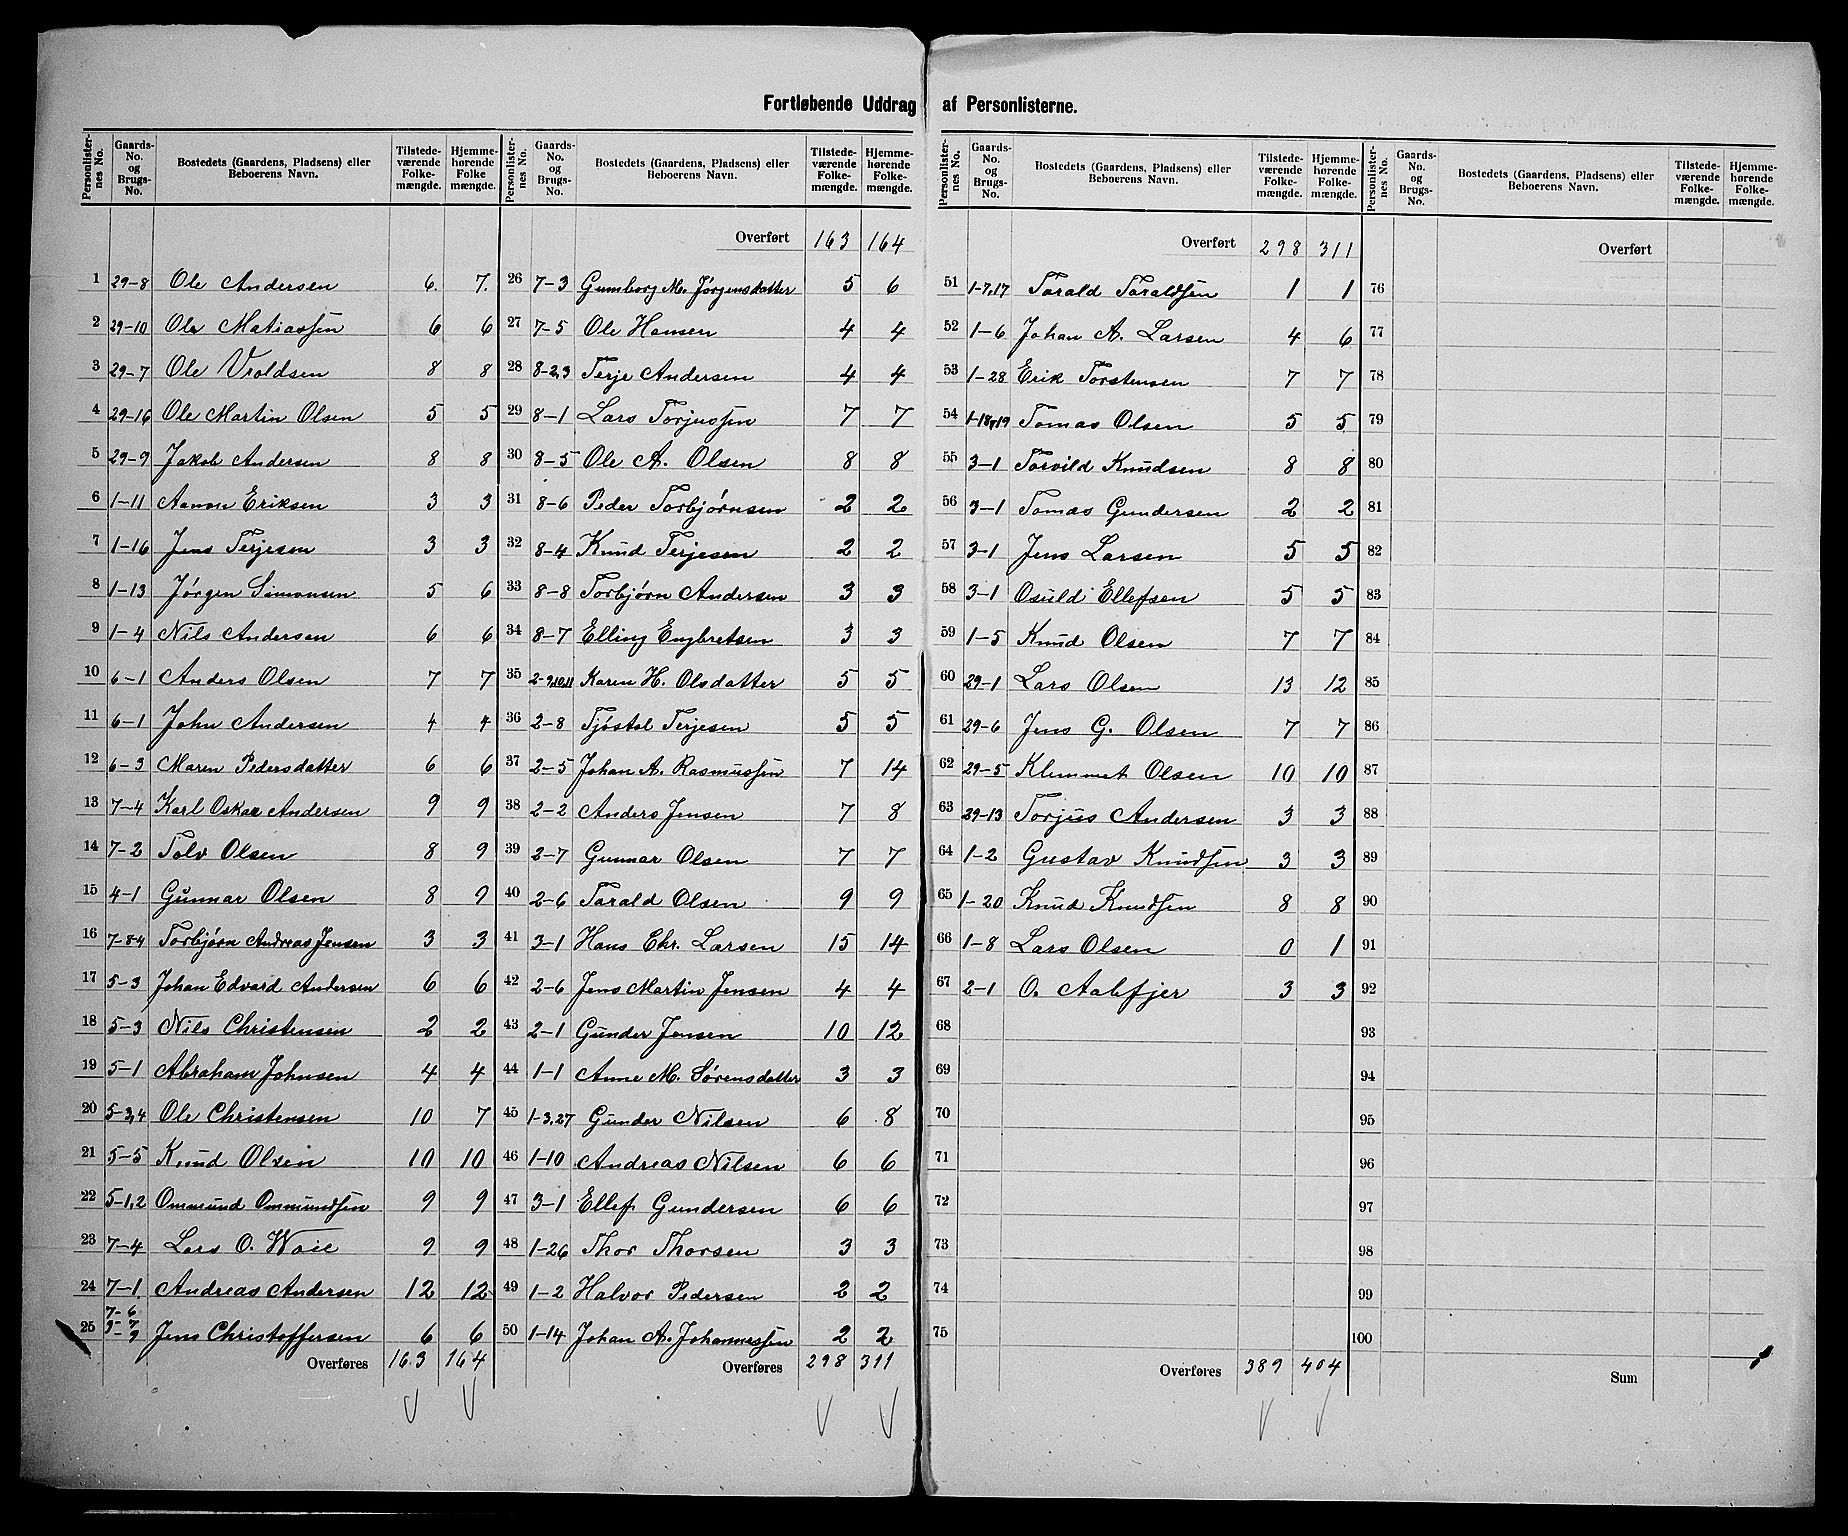 Fortløbende Uddrag af Personlisterne.
Personlister- nes No. | Gaards- No. og Brugs- No. | Bostedets (Gaardens, Pladsens) eller Beboerens Navn. | Tilstede- værende Folke- mængde. | Hjemme- hørende Folke mængde.
1 29-8 Ole Andersen 6. 7.
2 29-10 Ole Matiassen 6 6
3 29-7 Ole Vroldsen 8 8
4 29-16 Ole Martin Olsen 5 5
5 29-9 Jakob Andersen 8 8
6 1-11 Aanon Eriksen 3 3
7 1-16 Jens Terjesen 3 3
8 1-13 Jørgen Simonsen 5 6
9 1-4 Nils Andersen 6 6
10 6-1 Anders Olsen 7 7
11 6-1 John Andersen 4 4
12 6-3 Maren Pedersdatter 6 6
13 7-4 Karl Oskar Andersen 9 9
14 7-2 Tolv Olsen 8 9
15 4-1 Gunnar Olsen 8 9
16 7-8-4 Torbjørn Andreas Jensen 3 3
17 5-3 Johan Edvard Andersen 6 6
18 5-3 Nils Christensen 2 2
19 5-1 Abraham Johnsen 4 4
20 5-3,4 Ole Christensen 10 7
21 5-5 Knud Olsen 10 10
22 5-1,2 Ommund Ommundsen 9 9
23 7-4 Lars O. Waie 9 9
24 7-1. Andreas Andersen 12 12
25 7-6 Jens Christoffersen 6 6
Overføres 163 164
Personlister- nes No. | Gaards- No. og Brugs- No. | Bostedets (Gaardens, Pladsens) eller Beboerens Navn. | Tilstede- værende Folke- mængde. | Hjemme- hørende Folke- mængde.
Overført 163 164
26 7-3 Gumborg M. Jørgensdatter 5 6
27 7-5 Ole Hansen 4 4
28 8-2,3 Terje Andersen 4 4
29 8-1 Lars Torjussen 7 7
30 8-5 Ole A. Olsen 8 8
31 8-6 Peder Torbjørnsen 2 2
32 8-4 Knud Terjesen 2 2
33 8-8 Torbjørn Andersen 3 3
34 8-7 Elling Engbretsen 3 3
35 2-9,10,11 Karen H. Olsdatter 5 5
36 2-8 Tjøstol Terjesen 5 5
37 2-5 Johan A. Rasmussen 7 14
38 2-2 Anders Jensen 7 8
39 2-7 Gunnar Olsen 7 7
40 2-6 Tarald Olsen 9 9
41 3-1 Hans Chr. Larsen 15 14
42 2-6 Jens Martin Jensen 4 4
43 2-1 Gunder Jensen 10 12
44 1-1 Anne M. Sørensdatter 3 3
45 1-3,27 Gunder Nilsen 6 8
46 1-10 Andreas Nilsen 6 6
47 3-1 Ellef Gundersen 6 6
48 1-26 Thor Thorsen 3 3
49 1-2 Halvor Pedersen 2 2
50 1-14 Johan A. Johannessen 2 2
Overføres 298 311
Personlister- nes No. | Gaards- No. og Brugs- No. | Bostedets (Gaardens, Pladsens) eller Beboerens Navn. | Tilstede- værende Folke- mængde. | Hjemme- hørende Folke- mængde.
Overført 298 311
51 1-7,17 Tarald Taraldsen 1 1
52 1-6 Johan A. Larsen 4 6
53 1-28 Erik Torstensen 7 7
54 1-18,19 Tomas Olsen 5 5
55 3-1 Torvild Knudsen 8 8
56 3-1 Tomas Gundersen 2 2
57 3-1 Jens Larsen 5 5
58 3-1 Osuld Ellefsen 5 5
59 1-5 Knud Olsen 7 7
60 29-1 Lars Olsen 13 12
61 29-6 Jens G. Olsen 7 7
62 29-5 Klemmet Olsen 10 10
63 29-13 Torjus Andersen 3 3
64 1-2 Gustav Knudsen 3 3
65 1-20 Knud Knudsen 8 8
66 1-8 Lars Olsen 0 1
67 2-1 O. Aalefjer 3 3
68
69
70
71
72
73
74
75
Overføres 389 404
Personlister- nes No. | Gaards- No. og Brugs- No. | Bostedets (Gaardens, Pladsens) eller Beboerens Navn. | Tilstede- værende Folke- mængde. | Hjemme- hørende Folke- mængde.
Overført
76
77
78
79
80
81
82
83
84
85
86
87
88
89
90
91
92
93
94
95
96
97
98
99
100
Sum